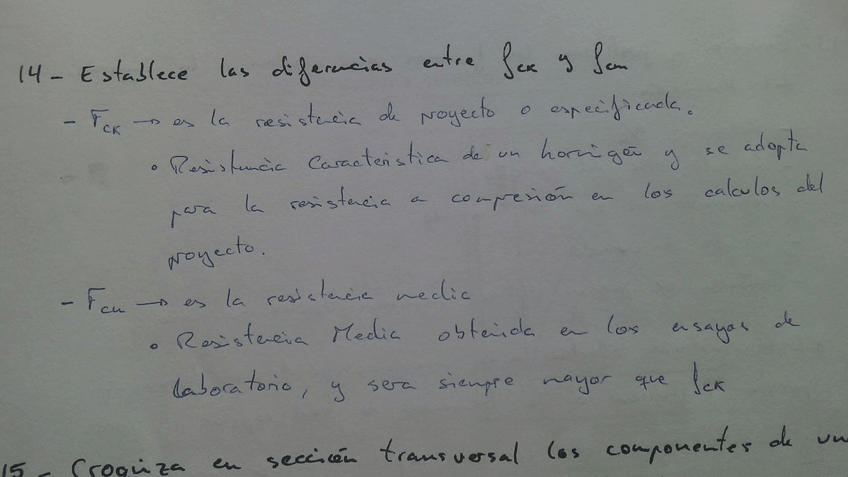 14 - Establece las diferencias entre fck y fcm
- Fck → es la resistencia de proyecto o especificada.
• Resistencia Caracteristica de un hormigón y se adopta
para la resistencia a compresión en los calculos del
proyecto.
- Fcm → es la resistencia media
• Resistencia Media obtenida en los ensayos de
laboratorio, y sera siempre mayor que fck
15 - Croquiza en sección transversal los componentes de un